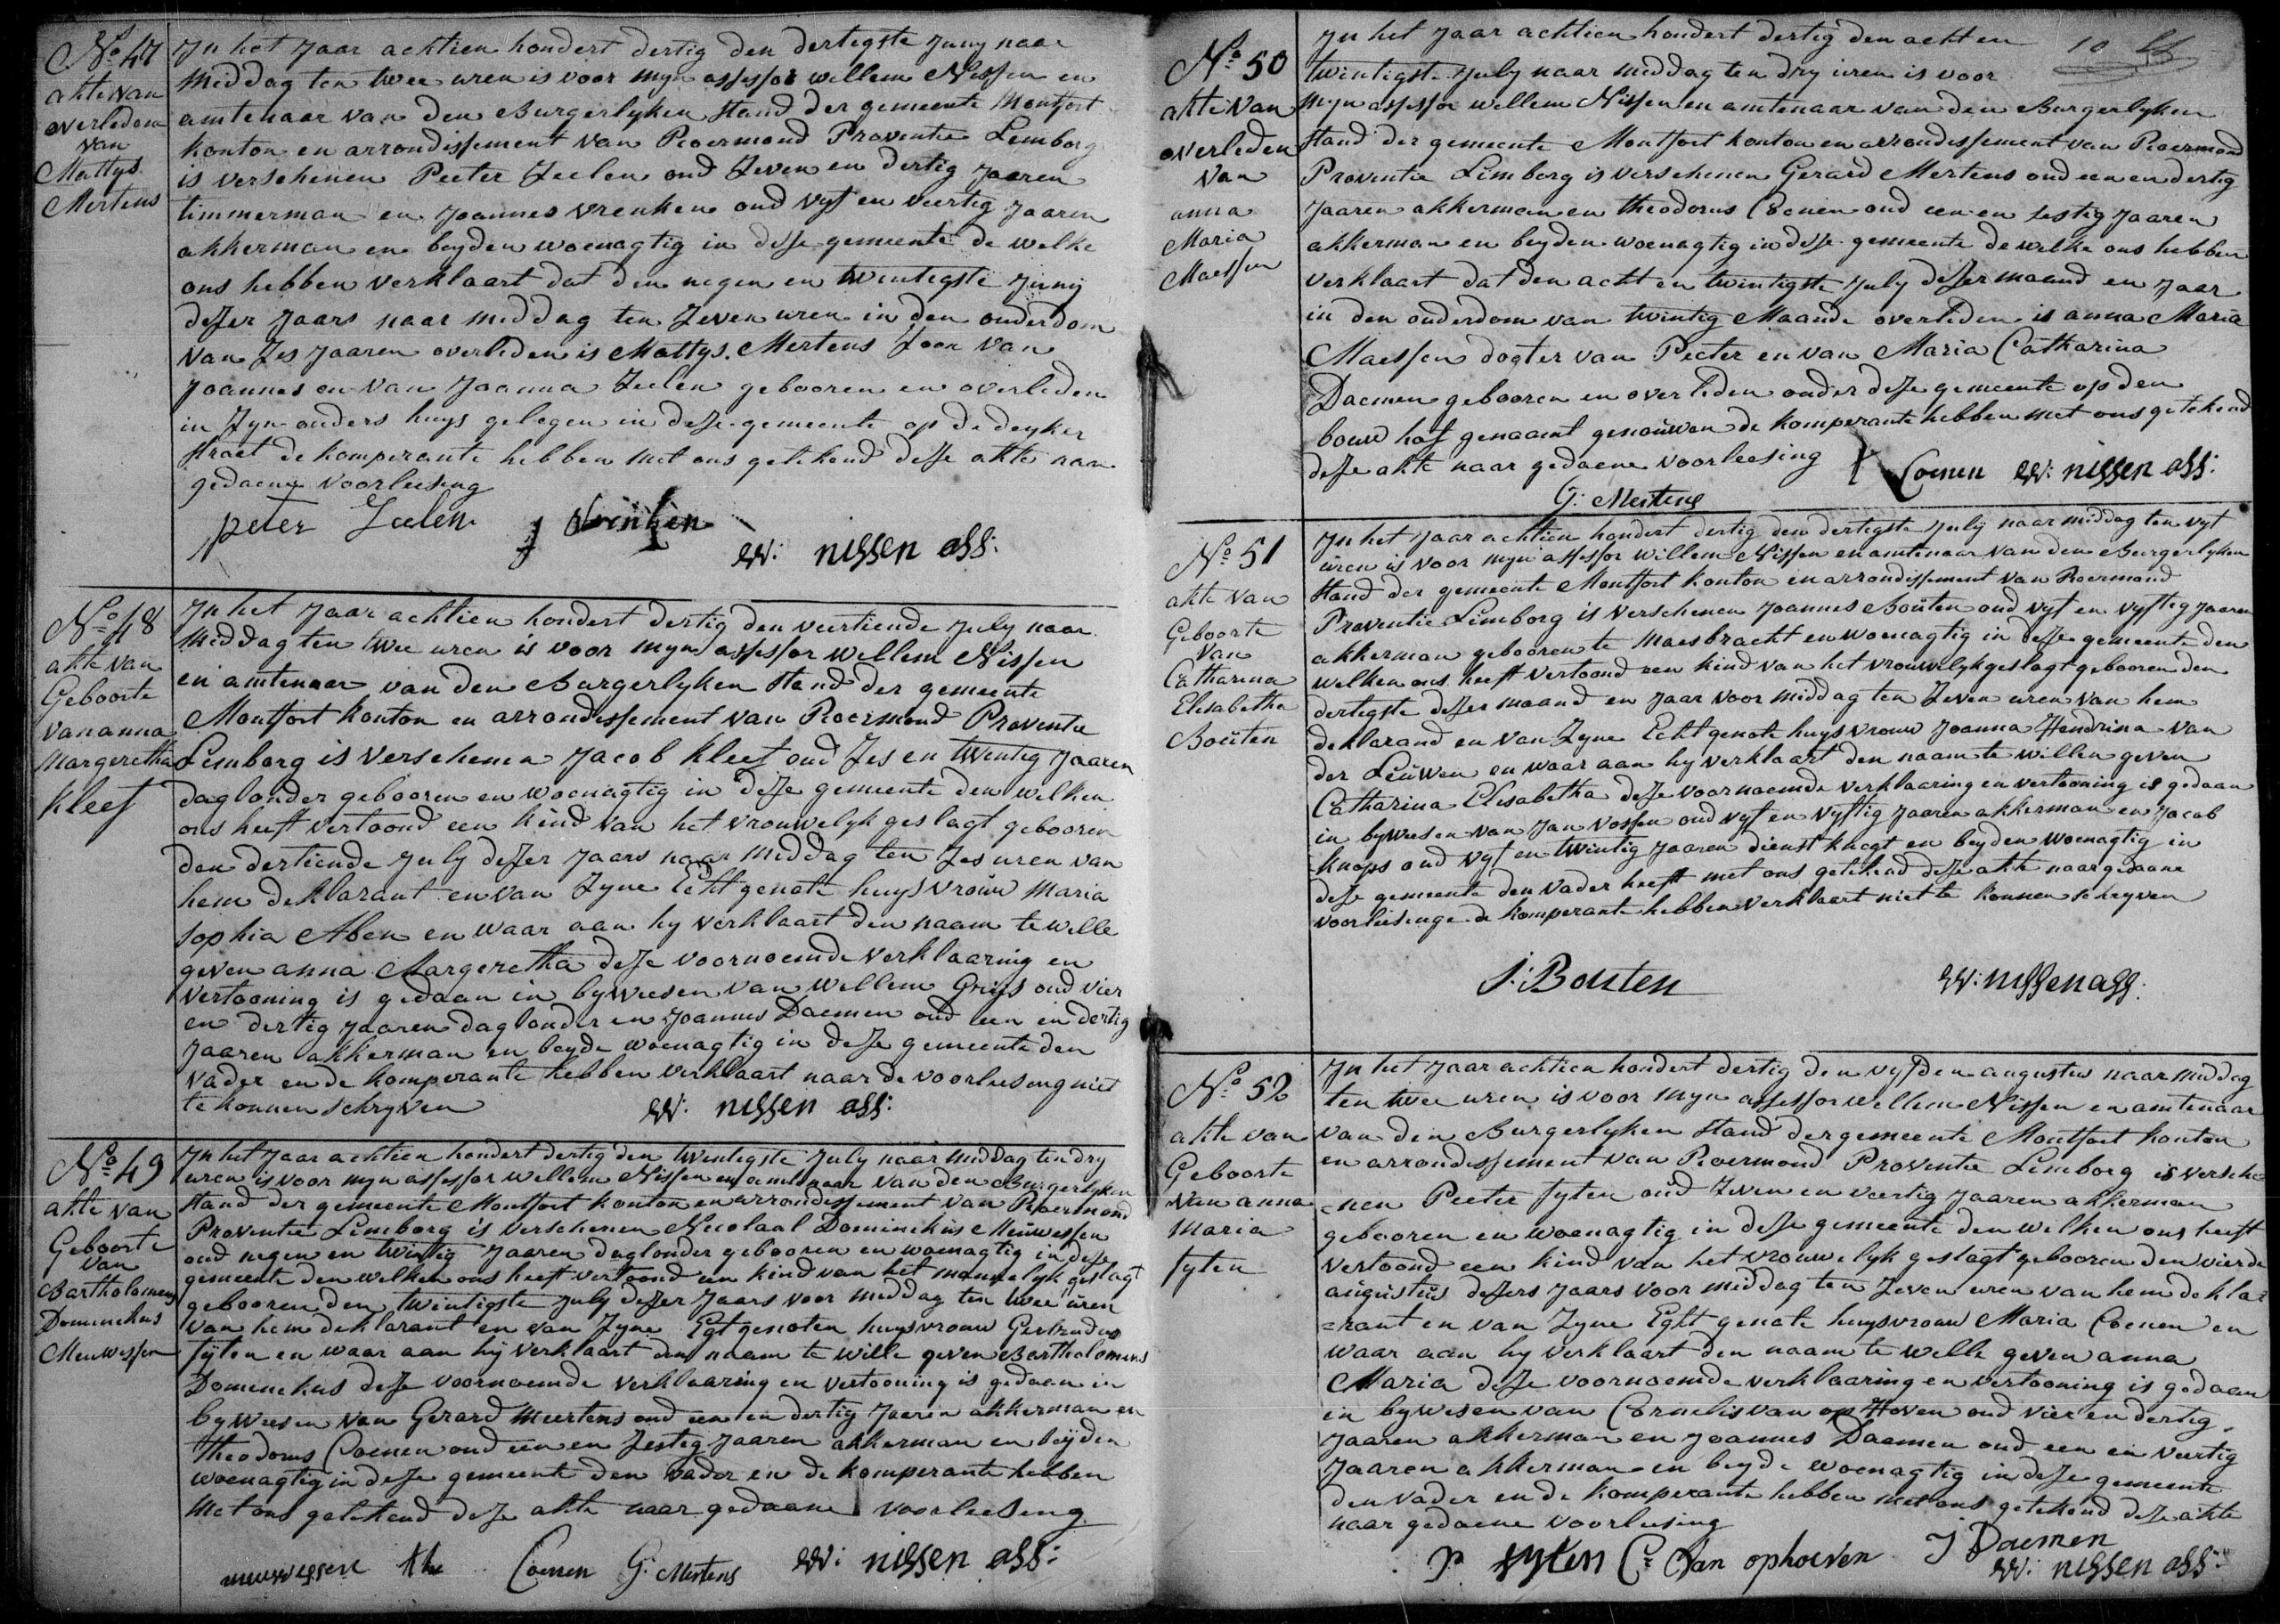 No 47
akte van
overleden
van
Mattys
Mertens
Jn het Jaar achtien hondert dertig den dertigste Juny naar
middag ten twee uren is voor myn assessor willem Nissen en
amtenaar van den Burgerlyken stand der gemeente Montfort
konton en arrondissement van Roermond Proventie Lemborg
is verschenen Peeter Zeelen oud Zeven en dertig Jaaren
timmerman en Joannes Vrenken oud vyf en veertig Jaaren
akkerman en beyden woenagtig in desse gemeente de welke
ons hebben verklaart dat den negen en twentigste Junij
desser Jaars naar middag ten Zeven uren in den ouderdom
van Zes Jaaren overleden is Mattys Mertens Zoon van
Joannes en van Joanna Zeelen gebooren en overleden
in Zyn ouders huys gelegen in desse gemeente op de deyker
straet de komperante hebben met ons getekend desse akte naar
gedaene voorleesing
peter Zeelen J Vrinken
W: nissen ass:
No 48
akte van
Geboorte
van anna
Margeretha
kleef
Jn het Jaar achtien hondert dertig den veertiende July naar
middag ten twee uren is voor myn assessor willem Nissen
en amtenaar van den Burgerlyken stand der gemeente
Montfort konton en arrondissement van Roermond Proventie
Lemborg is verschenen Jacob kleef oud Zes en twentig Jaaren
daglonder gebooren en woenagtig in desse gemeente den welken
ons heeft vertoond een kind van het vrouwelyk geslagt gebooren
den dertiende July desser Jaars naar middag ten Zes uren van
hem deklarant en van Zyne Echt genote huysvrouw Maria
sophia Aben en waar aan hy verklaart den naam te wille
geven anna Margeretha desse voornoemde verklaaring en
vertooning is gedaan in bywesen van willem Gruys oud vier
en dertig Jaaren daglonder en Joannes Daemen oud een en dertig
Jaaren akkerman en beyde woenagtig in desse gemeente den
vader en de komperante hebben verklaart naar de voorleesong niet
te konnen schryven W: nissen ass:
No 49
akte van
Geboorte
van
Bartholomeus
Domenekus
Meuwessen
Jn het Jaar achtien hondert dertig den twentegste July naar middag ten dry
uren is voor myn assessor willem Nissen en amtenaar van den Burgerlyken
stand der gemeente Montfort konton en arrondissement van Roermond
Proventie Lemborg is verschenen Necolaal Dominekus Meuwessen
oud negen en twintig Jaaren daglonder gebooren en woenagtig in desse
gemeente den welken ons heeft vertoond een kind van het mannelyk geslagt
gebooren den twintigste July desser Jaars voor middag ten twee uren
van hem deklarant en van Zyne Egt genoten huysvrouw Gertrudus
fyten en waar aan hij verklaart den naam te wille geven Bartholomeus
Domenekus desse voornoemde verklaaring en vertooning is gedaan in
byweesen van Gerard Meertens oud een en dertig Jaeren akkerman en
theodorus Coenen oud een en Zesteg Jaaren akkerman en beijden
woenagtig in desse gemeente den vader en de komperante hebben
met ons getekend desse akte naar gedaane voorleeseng
meuwessen th Coenen G: Mertens W: nissen ass:
10
No 50
akte van
overleden
van
anna
Maria
Maessen
Jn het Jaar achtien hondert dertig den acht en
twintigste July naar middag ten dry uren is voor
myn assessor willem Nissen en amtenaar van den Burgerlyken
stand der gemeente Montfort konton en arrondissement van Roermond
Proventie Limborg is verschenen Gerard Mertens oud een en dertig
Jaaren akkerman en theodorus Coenen oud een en sestig Jaaren
akkerman en beyden woenagtig in desse gemeente de welke ons hebben
verklaart dat den acht en twintigste July desser maand en Jaar
in den ouderdom van twintig Maande overleden is anna Maria
Maessen dogter van Peeter en van Maria Catharina
Daemen gebooren en overleden onder desse gemeente op den
bouw hof genaemt genouwen de komperante hebben met ons getekend
desse akte naar gedaene voorleesing t Coenen W: nissen ass:
G: Mertens
No 51
akte van
Geboorte
van
Catharina
Elisabetha
Bouten
Jn het Jaar achtien hondert dertig den dertigste July naar middag ten vyf
uren is voor myn assessor willem Nissen en amtenaar van den Burgerlyken
stand der gemeente Montfort konton en arrondissement van Roermond
Proventie Limborg is verschenen Joannes Bouten oud vyf en vyftig Jaaren
akkerman gebooren te Maesbracht en woenagtig in desse gemeente den
welken ons heeft vertoond een kind van het vrouwelyk geslagt gebooren den
dertegste desser maand en Jaar voor middag ten Zeven uren van hem
deklarand en van Zyne Echt genote huysvrouw Joanna Hendrina van
der Leuwen en waar aan hy verklaart den naam te willen geven
Catharina Elisabetha desse voornoemde verklaaring en vertooning is gedaan
in bywesen van Jan vossen oud vyf en vyftig Jaaren akkerman en Jacob
knops oud vyf en twintig Jaaren dienst knegt en beyden woenagtig in
desse gemeente den vader heeft met ons getekend desse akte naar gedaane
voorleesinge de komperante hebben verklaart niet te konnen schryven
J: Bouten W: nissen ass:
No 52
akte van
Geboorte
van anna
Maria
fyten
Jn het Jaar achtien hondert dertig den vyfden augustus naar middag
ten twee uren is voor myn assessor willem Nissen en amtenaar
van den Burgerlyken stand der gemeente Montfort konton
en arrondessement van Roermond Proventie Lemborg is versche
=nen Peeter fyten oud Zeven en veertig Jaaren akkerman
gebooren en woenagtig in desse gemeente den welken ons heeft
vertoond een kind van het vrouwelyk geslagt gebooren den vierde
augustus dessers Jaars voor middag ten Zeven uren van hem dekla=
=rant en van Zyne Eght genote huysvrouw Maria Coenen en
waar aan hy verklaart den naam te welle geven anna
Maria desse voornoemde verklaaring en vertooning is gedaan
in bywesen van Cornelis van op Hoven oud vier en dertig
Jaaren akkerman en Joannes Daemen oud een en veertig
Jaaren akkerman en beyde woenagtig in desse gemeente
den vader en de komperante hebben met ons getekend desse akte
naar gedaene voorleesing
P fyten C: Van ophoeven J Daemen
W: nissen ass: